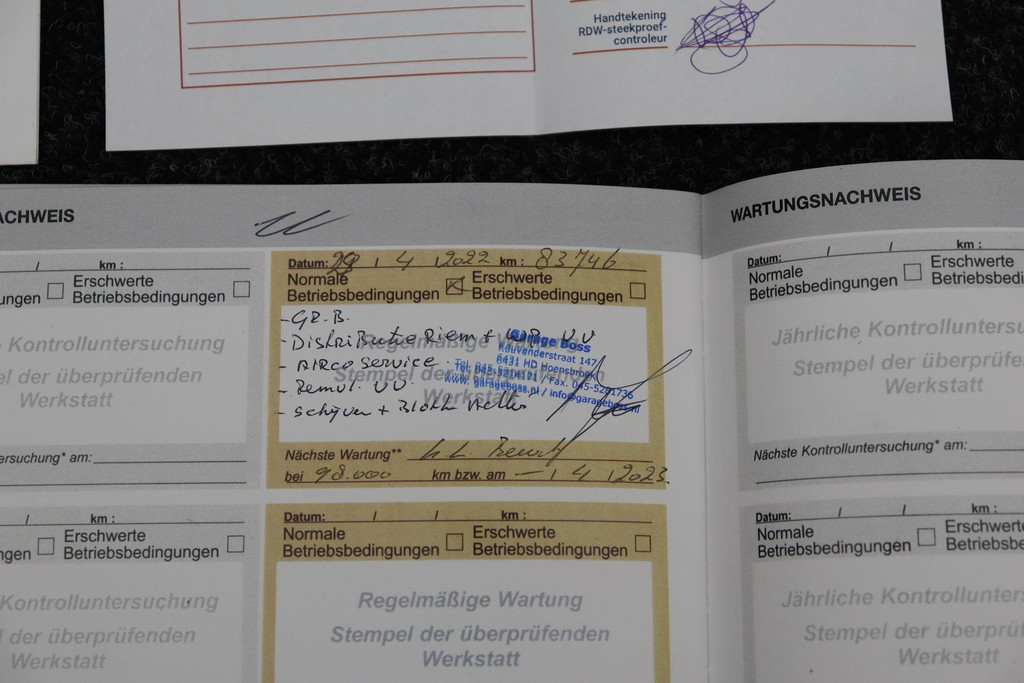 Handtekening
RDW-steekproef-
controleur
ACHWEIS
WARTUNGSNACHWEIS
/ km :
ungen Erschwerte
Betriebsbedingungen
Kontrolluntersuchung
el der überprüfenden
Werkstatt
ersuchung* am:
Datum: 29 / 4 / 2022 km : 83746
Normale
Betriebsbedingungen
Erschwerte
Betriebsbedingungen
Regelmäßige Wartung
Stempel der überprüfenden
Werkstatt
- GR.B.
- Distributie Riem + W.P. V.V
- AIRCO Service
- Remvl. VV
- schijven + Blokken
Garage Boss
Kouvenderstraat 147
6431 HD Hoensbroek
Fax. 045-5281736
www. garageboss.nl / info@garageboss.nl
Nächste Wartung**
bei 98.000 km bzw. am — / 4 / 2023
Datum: / / km :
Normale
Betriebsbedingungen
Erschwerte
Betriebsbedingungen
Jährliche Kontrolluntersuch
Stempel der überprüfen
Werkstatt
Nächste Kontrolluntersuchung* am:
/ km :
ngen Erschwerte
Betriebsbedingungen
Kontrolluntersuchung
l der überprüfenden
Werkstatt
Datum: / / km :
Normale
Betriebsbedingungen
Erschwerte
Betriebsbedingungen
Regelmäßige Wartung
Stempel der überprüfenden
Werkstatt
Datum: / / km :
Normale
Betriebsbedingungen
Erschwerte
Betriebsbe
Jährliche Kontrollunters
Stempel der überprü
Werkstatt